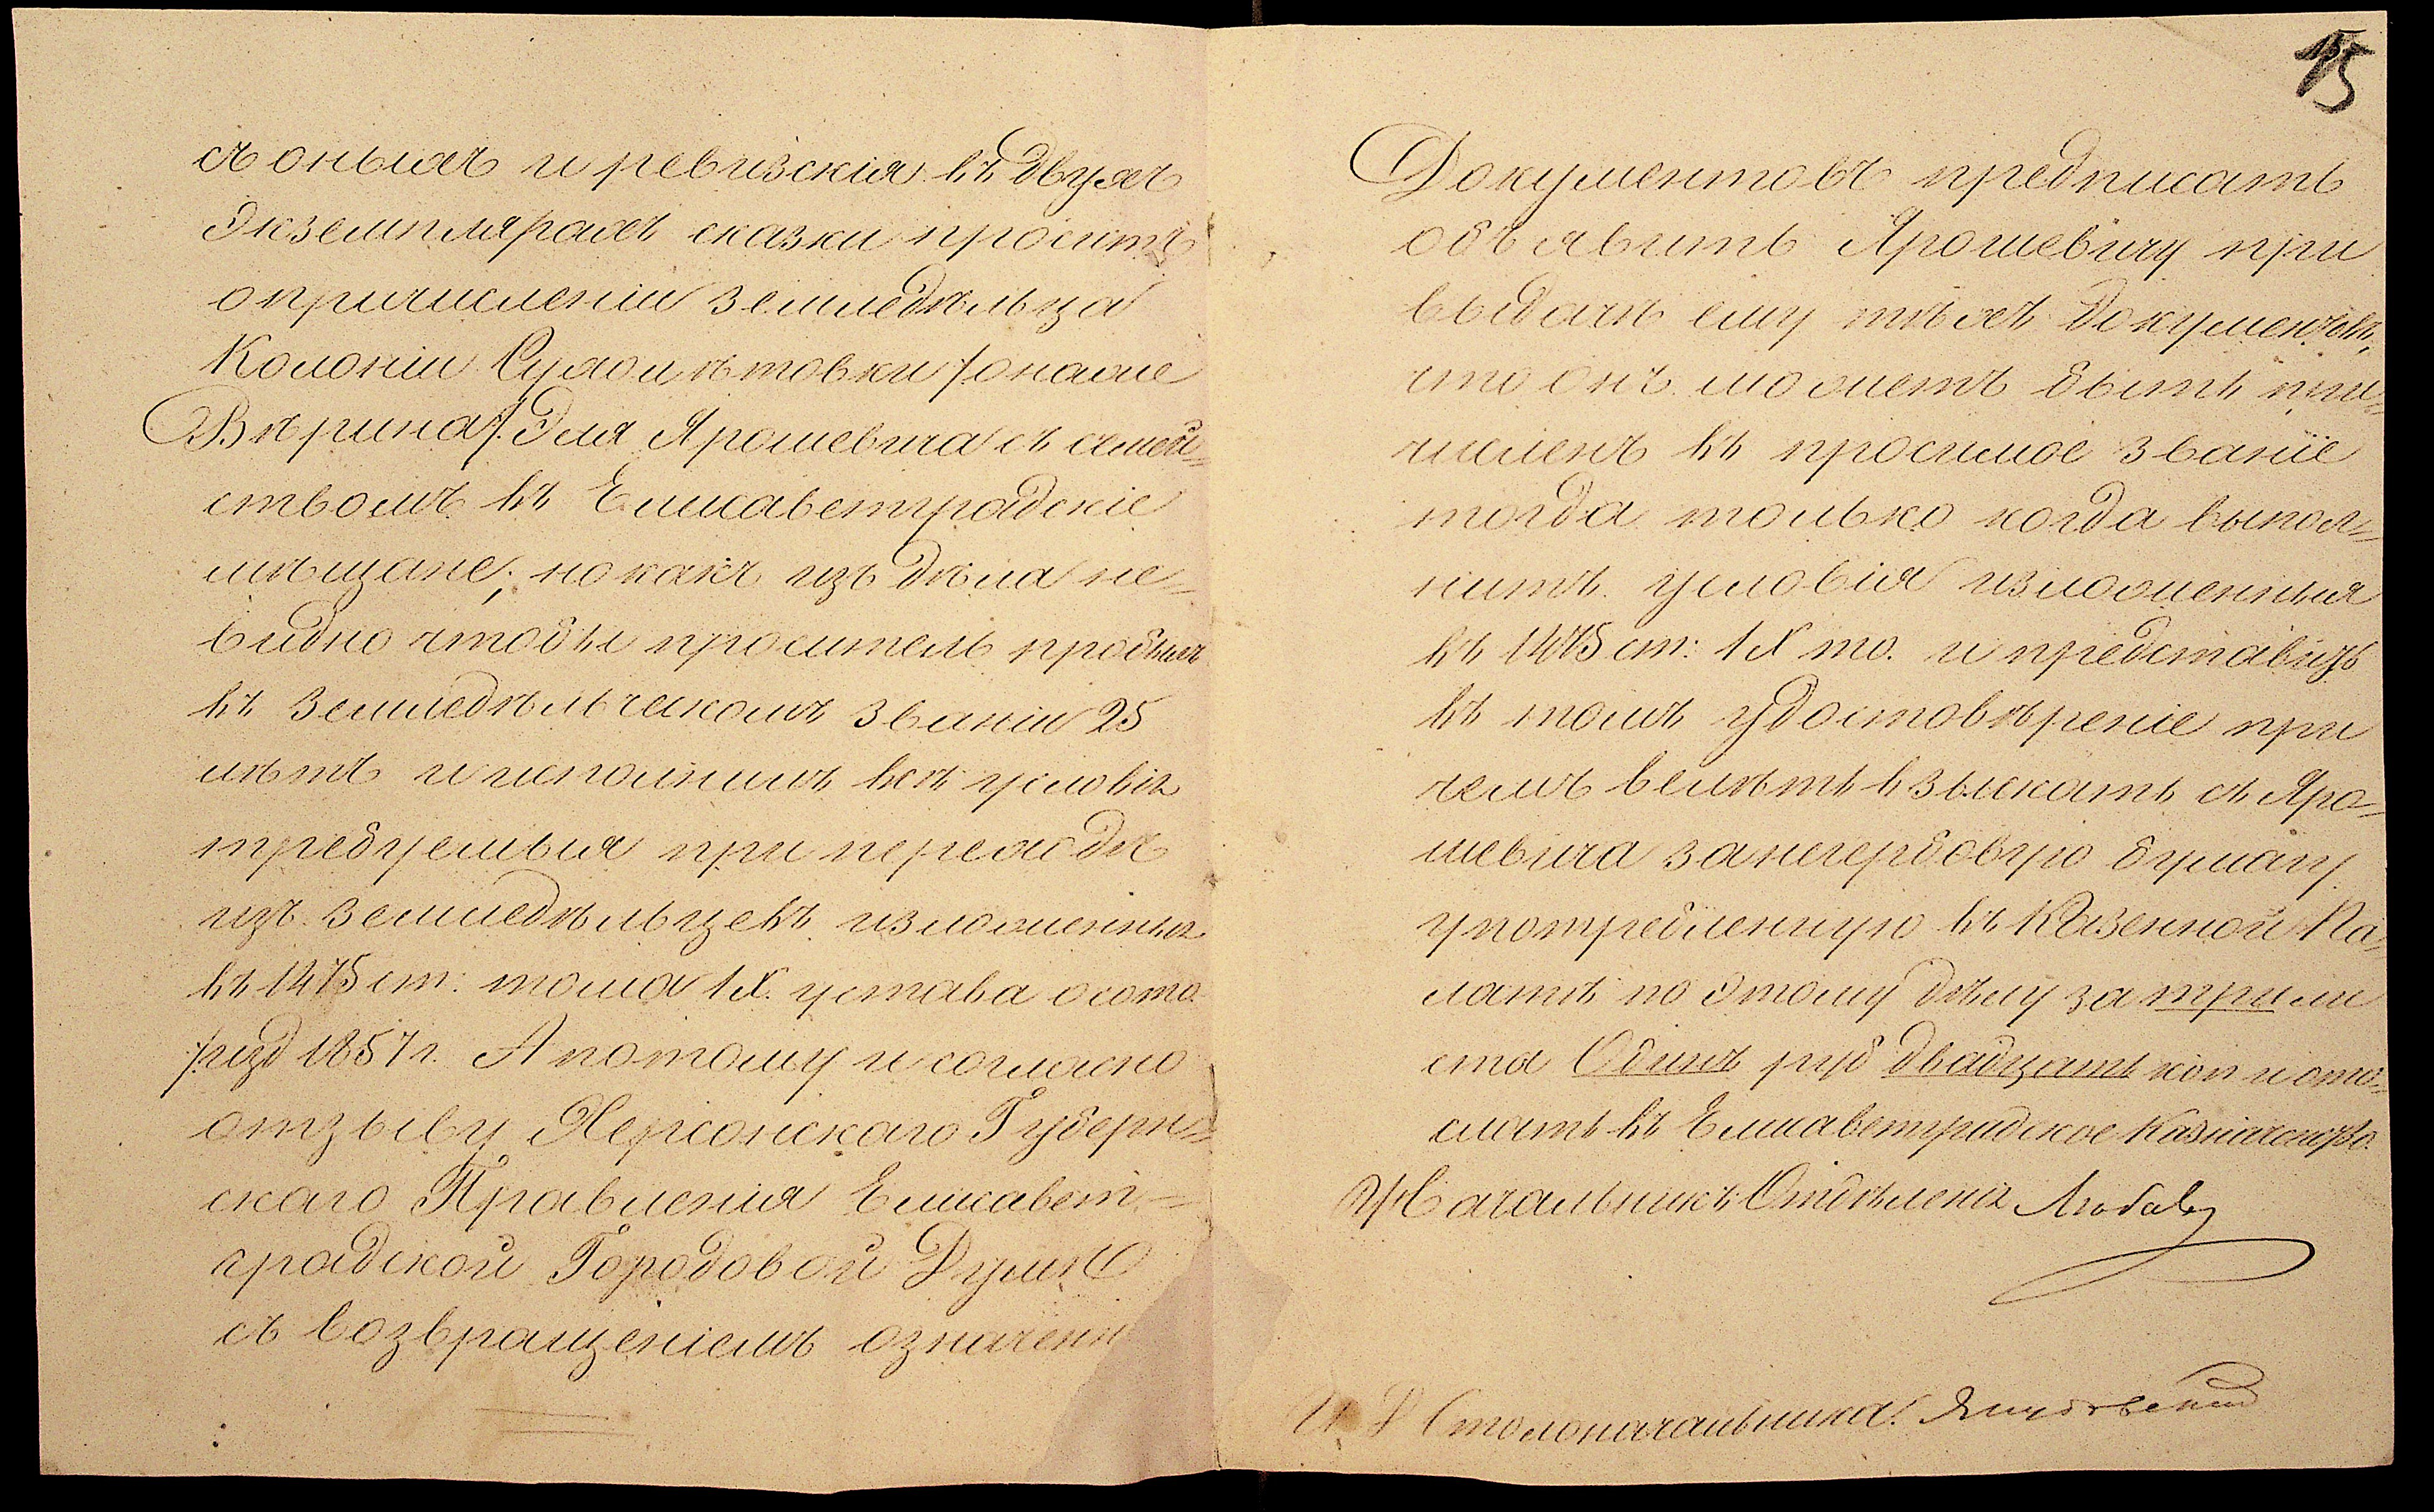 съ онымъ и ревизскія въ двухъ
экземплярахъ сказки проситъ
о причисленіи земледѣльца
Колоніи Сухоилѣтовки /онаже
Вѣрина/ Эля Ярошевича съ семей=
ствомъ въ Елисаветградскіе
мѣщане, но какъ изъ дѣла не=
видно чтобы проситель пробылъ
въ земледѣльческомъ званіи 25
лѣтъ и исполнилъ всѣ условія
требуемыя при переходѣ
изъ земледѣльцевъ изложенныя
въ 1475 ст: тома IX. устава о сост.
/изд 1857 г. А потому и согласно
отзыву Херсонскаго Губерн=
скаго Правленія Елисавет=
градской Городовой Думѣ
съ возвращеніемъ означенн
15
Документовъ предписать
объявить Ярошевичу при
выдачѣ ему тѣхъ документовъ,
что онъ можетъ быть при=
численъ въ просимое званіе
тогда только когда выпол=
нитъ условія изложенныя
въ 1475 ст: IX то. и представитъ
въ томъ удостовѣреніе при
чемъ велѣть взыскать съ Яро=
шевича за негербовую бумагу
употребленную въ Казенной Па=
латѣ по этому дѣлу за три ли
ста Одинъ руб двадцать коп и ото=
слать въ Елисаветградское Казначейство.
Начальникъ Отдѣленія
И. Д Столоначальника.